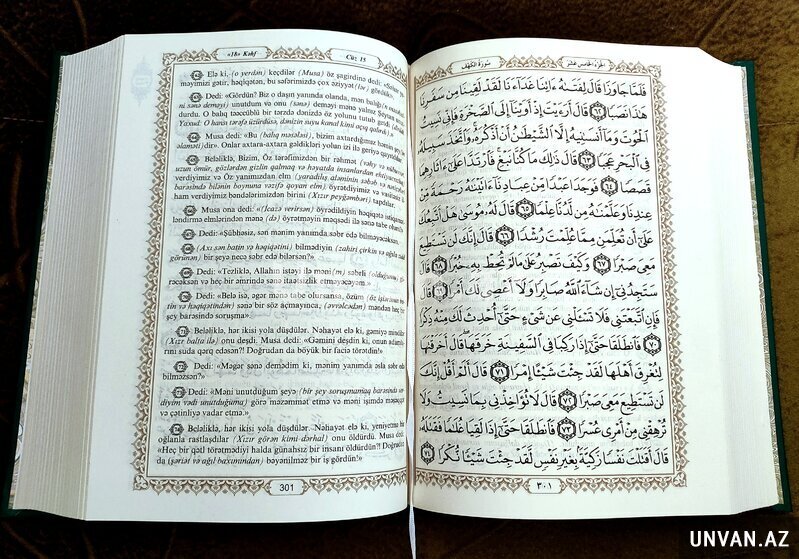 «18» Kəhf
Cüz 15
Elə ki, (o yerdən) keçdilər (Musa) öz şagirdinə dedi:
məyimizi gətir, həqiqətən, bu səfərimizdə çox əziyyət
Dedi: «Gördün? Biz o daşın yanında olanda, mən balığı
ni sənə deməyi) unutdum və onu (sənə) deməyi mənə yalnız Şeytan
durdu. O balıq təəccüblü bir tərzdə dənizdə öz yolunu tutub getdi
Yaxud: O hərin tərəfə üzürdüsə, dənizin suyu kanal kimi açıq qalırdı
Musa dedi: «Bu (balıq məsələsi), bizim axtardığımız həmin
əlaməti)dir». Onlar axtara-axtara gəldikləri yolun izi ilə geriyə qayıtdılar.
Beləliklə, Bizim, Öz tərəfimizdən bir rəhmət (vəhy və
uzun ömür, gözlərdən gizlin qalmaq və həyatda insanlardan ehtiyacsızlıq)
verdiyimiz və Öz yanımızdan elm (yaradılış aləminin səbəb və
barəsində bilənin boynuna vəzifə qoyan elm) öyrətdiyimiz və vasitəsiz
ham verdiyimiz bəndələrimizdən birini (Xızır peyğəmbəri) tapdılar.
Musa ona dedi: «(İcazə verirsən) öyrədildiyin həqiqətə
ləndirmə elmlərindən mənə (də) öyrətməyin məqsədi ilə sənə tabe olum?»
Dedi: «Şübhəsiz, sən mənim yanımda səbr edə bilməyəcəksən.
(Axı sən batin və həqiqətini) bilmədiyin (zahiri çirkin və ağla
görünən) bir şeyə necə səbr edə bilərsən?»
Dedi: «Tezliklə, Allahın istəyi ilə məni(m) səbrli (olduğumu)
rəcəksən və heç bir əmrində sənə itaətsizlik etməyəcəyəm.»
Dedi: «Belə isə, əgər mənə tabe olursansa, özüm (öz işlərimin
tin və həqiqətindən) sənə bir söz açmayınca, (əvvəlcədən) məndən heç
şey barəsində soruşma».
Beləliklə, hər ikisi yola düşdülər. Nəhayət elə ki, gəmiyə mindilər
(Xızır balta ilə) onu deşdi. Musa dedi: «Gəmini deşdin ki, onun adamla-
rını suda qərq edəsən?! Doğrudan da böyük bir faciə törətdin!»
Dedi: «Məgər sənə demədim ki, mənim yanımda əsla səbr edə
bilməzsən?»
Dedi: «Məni unutduğum şeyə (bir şey soruşmamaq barəsində
diyim vədi unutduğuma) görə məzəmmət etmə və məni işimdə məşəqqət
və çətinliyə vadar etmə.»
Beləliklə, hər ikisi yola düşdülər. Nəhayət elə ki, yeniyetmə bir
oğlanla rastlaşdılar (Xızır görən kimi dərhal) onu öldürdü. Musa dedi:
«Heç bir qətl törətmədiyi halda günahsız bir insanı öldürdün?! Doğrudan
da (şəriət və ağıl baxımından) bəyənilməz bir iş gördün!»
301
سورة الكهف
الجزء الخامس عشر
فَلَمَّا جَاوَزَا قَالَ لِفَتَىٰهُ ءَاتِنَا غَدَآءَنَا لَقَدْ لَقِينَا مِن سَفَرِنَا
هَٰذَا نَصَبًا ٦٢ قَالَ أَرَءَيْتَ إِذْ أَوَيْنَآ إِلَى ٱلصَّخْرَةِ فَإِنِّى نَسِيتُ
ٱلْحُوتَ وَمَآ أَنسَىٰنِيهُ إِلَّا ٱلشَّيْطَٰنُ أَنْ أَذْكُرَهُۥ وَٱتَّخَذَ سَبِيلَهُۥ
فِى ٱلْبَحْرِ عَجَبًا ٦٣ قَالَ ذَٰلِكَ مَا كُنَّا نَبْغِ فَٱرْتَدَّا عَلَىٰٓ ءَاثَارِهِمَا
قَصَصًا ٦٤ فَوَجَدَا عَبْدًا مِّنْ عِبَادِنَآ ءَاتَيْنَٰهُ رَحْمَةً مِّنْ
عِندِنَا وَعَلَّمْنَٰهُ مِن لَّدُنَّا عِلْمًا ٦٥ قَالَ لَهُۥ مُوسَىٰ هَلْ أَتَّبِعُكَ
عَلَىٰٓ أَن تُعَلِّمَنِ مِمَّا عُلِّمْتَ رُشْدًا ٦٦ قَالَ إِنَّكَ لَن تَسْتَطِيعَ
مَعِىَ صَبْرًا ٦٧ وَكَيْفَ تَصْبِرُ عَلَىٰ مَا لَمْ تُحِطْ بِهِۦ خُبْرًا ٦٨ قَالَ
سَتَجِدُنِىٓ إِن شَآءَ ٱللَّهُ صَابِرًا وَلَآ أَعْصِى لَكَ أَمْرًا ٦٩ قَالَ
فَإِنِ ٱتَّبَعْتَنِى فَلَا تَسْـَٔلْنِى عَن شَىْءٍ حَتَّىٰٓ أُحْدِثَ لَكَ مِنْهُ ذِكْرًا
٧٠ فَٱنطَلَقَا حَتَّىٰٓ إِذَا رَكِبَا فِى ٱلسَّفِينَةِ خَرَقَهَا قَالَ أَخَرَقْتَهَا
لِتُغْرِقَ أَهْلَهَا لَقَدْ جِئْتَ شَيْـًٔا إِمْرًا ٧١ قَالَ أَلَمْ أَقُلْ إِنَّكَ
لَن تَسْتَطِيعَ مَعِىَ صَبْرًا ٧٢ قَالَ لَا تُؤَاخِذْنِى بِمَا نَسِيتُ وَلَا
تُرْهِقْنِى مِنْ أَمْرِى عُسْرًا ٧٣ فَٱنطَلَقَا حَتَّىٰٓ إِذَا لَقِيَا غُلَٰمًا فَقَتَلَهُۥ
قَالَ أَقَتَلْتَ نَفْسًا زَكِيَّةًۢ بِغَيْرِ نَفْسٍ لَّقَدْ جِئْتَ شَيْـًٔا نُّكْرًا ٧٤
٣٠١
UNVAN.AZ